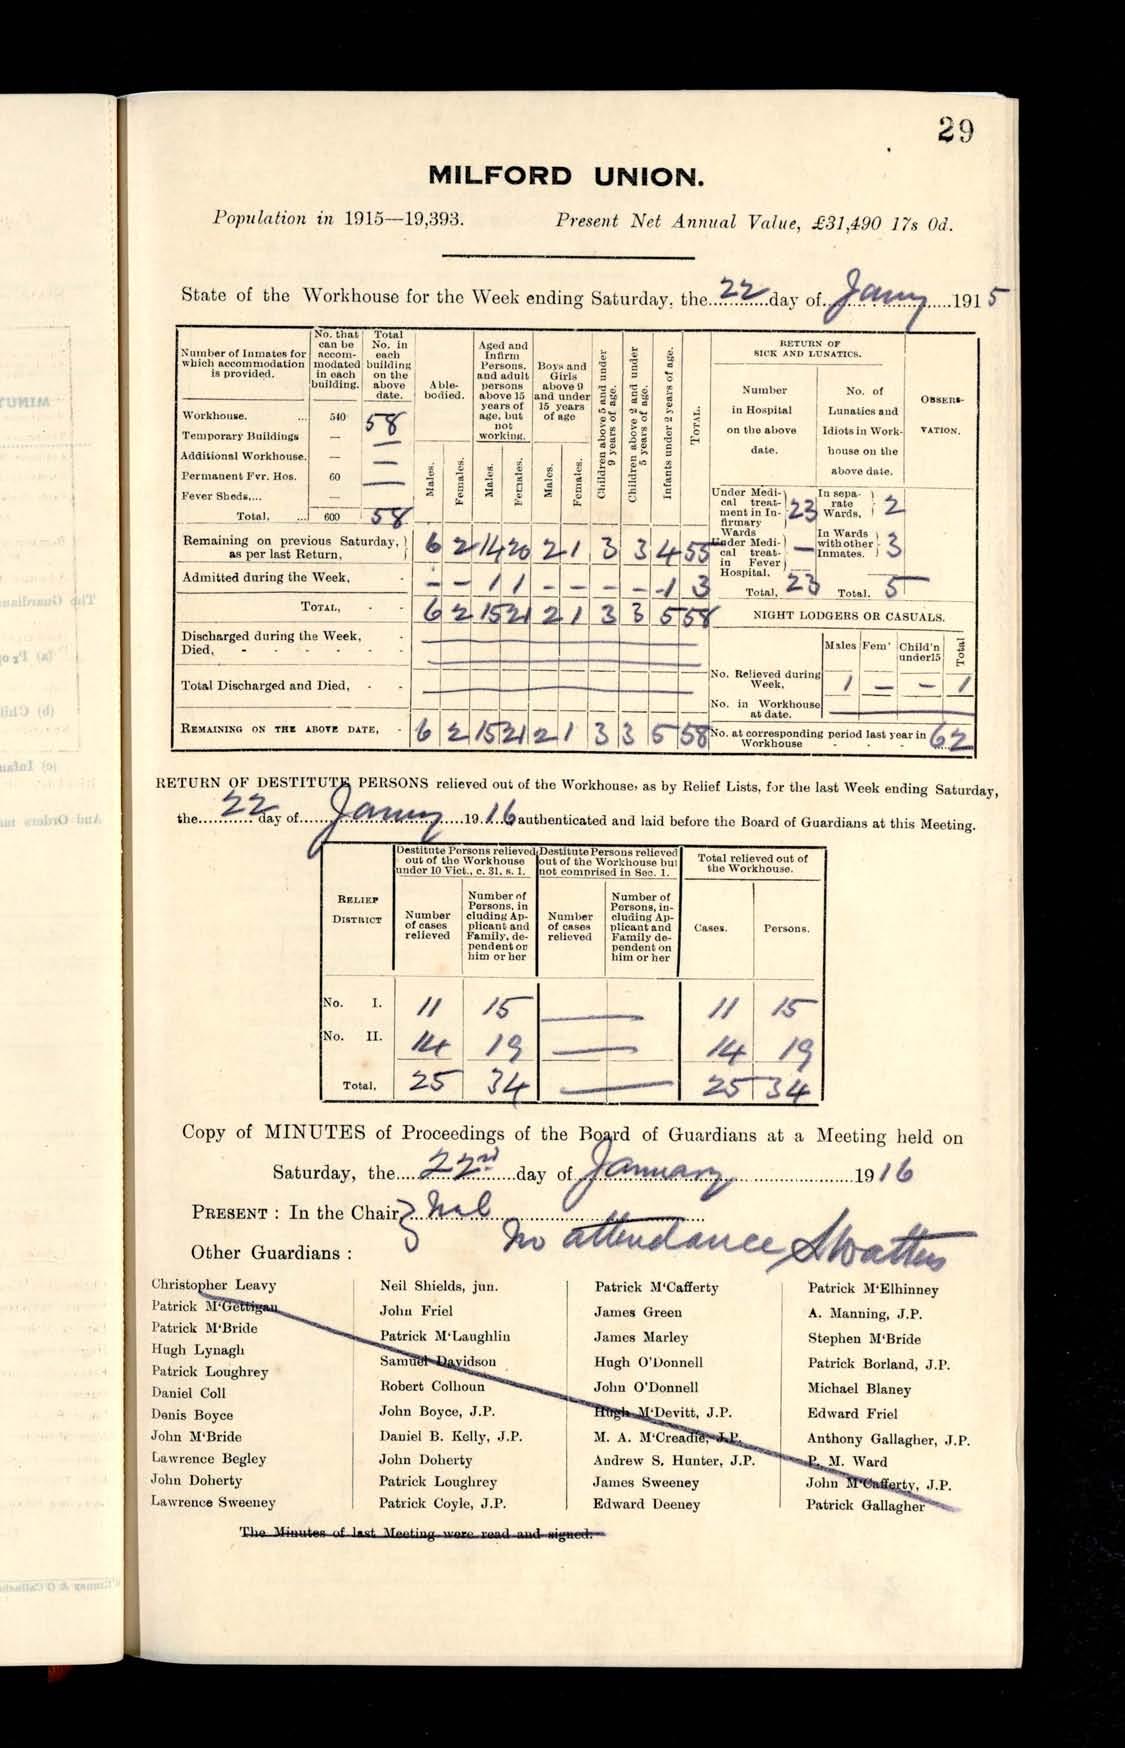 29
MILFORD UNION.
Population in 1915—19,393. Present Net Annual Value, £31,490 17s 0d.
State of the Workhouse for the Week ending Saturday, the 22 day of Jany 1915
Number of Inmates for which accommodation is provided. | No. that can be accommodated in each building. | Total No. in each building on the above date.
Workhouse. ... 540 58
Temporary Buildings — —
Additional Workhouse. — —
Permanent Fvr. Hos. 60 —
Fever Sheds,... —
Total, ... 600 58
Able-bodied. Males. Females.
Aged and Infirm Persons, and adult persons above 15 years of age, but not working. Males. Females.
Boys and Girls above 9 and under 15 years of age Males. Females.
Children above 5 and under 9 years of age.
Children above 2 and under 5 years of age.
Infants under 2 years of age.
TOTAL.
Remaining on previous Saturday, as per last Return, 6 2 14 20 2 1 3 3 4 55
Admitted during the Week, - — — 1 1 — — — — 1 3
TOTAL, - - 6 2 15 21 2 1 3 3 5 58
Discharged during the Week, -
Died, - - - - - -
Total Discharged and Died, - -
REMAINING ON THE ABOVE DATE, - 6 2 15 21 2 1 3 3 5 58
RETURN OF SICK AND LUNATICS.
Number in Hospital on the above date.
No. of Lunatics and Idiots in Workhouse on the above date.
OBSERVATION.
Under Medical treatment in Infirmary Wards 23
In separate Wards, 2
Under Medical treat- in Fever Hospital. —
In Wards with other Inmates. 3
Total, 23 Total. 5
NIGHT LODGERS OR CASUALS.
Males Fem' Child'n under15 Total
No. Relieved during Week, 1 — — 1
No. in Workhouse at date.
No. at corresponding period last year in Workhouse - - - 62
RETURN OF DESTITUTE PERSONS relieved out of the Workhouse, as by Relief Lists, for the last Week ending Saturday,
the 22 day of Jany 1916 authenticated and laid before the Board of Guardians at this Meeting.
RELIEF DISTRICT
Destitute Persons relieved out of the Workhouse under 10 Vict., c. 31, s. 1.
Destitute Persons relieved out of the Workhouse but not comprised in Sec. 1.
Total relieved out of the Workhouse.
Number of cases relieved
Number of Persons, including Applicant and Family, dependent on him or her
Number of cases relieved
Number of Persons, including Applicant and Family dependent on him or her
Cases. Persons.
No. I. 11 15 — 11 15
No. II. 14 19 — 14 19
Total, 25 34 — 25 34
Copy of MINUTES of Proceedings of the Board of Guardians at a Meeting held on
Saturday, the 22nd day of January 1916
PRESENT : In the Chair, Nil
No attendance SWatters
Other Guardians :
Christopher Leavy
Patrick M'Gettigan
Patrick M'Bride
Hugh Lynagh
Patrick Loughrey
Daniel Coll
Denis Boyce
John M'Bride
Lawrence Begley
John Doherty
Lawrence Sweeney
Neil Shields, jun.
John Friel
Patrick M'Laughlin
Samuel Davidson
Robert Colhoun
John Boyce, J.P.
Daniel B. Kelly, J.P.
John Doherty
Patrick Loughrey
Patrick Coyle, J.P.
Patrick M'Cafferty
James Green
James Marley
Hugh O'Donnell
John O'Donnell
Hugh M'Devitt, J.P.
M. A. M'Creadie, J.P.
Andrew S. Hunter, J.P.
James Sweeney
Edward Deeney
Patrick M'Elhinney
A. Manning, J.P.
Stephen M'Bride
Patrick Borland, J.P.
Michael Blaney
Edward Friel
Anthony Gallagher, J.P.
P. M. Ward
John M'Cafferty, J.P.
Patrick Gallagher
The Minutes of last Meeting were read and signed.